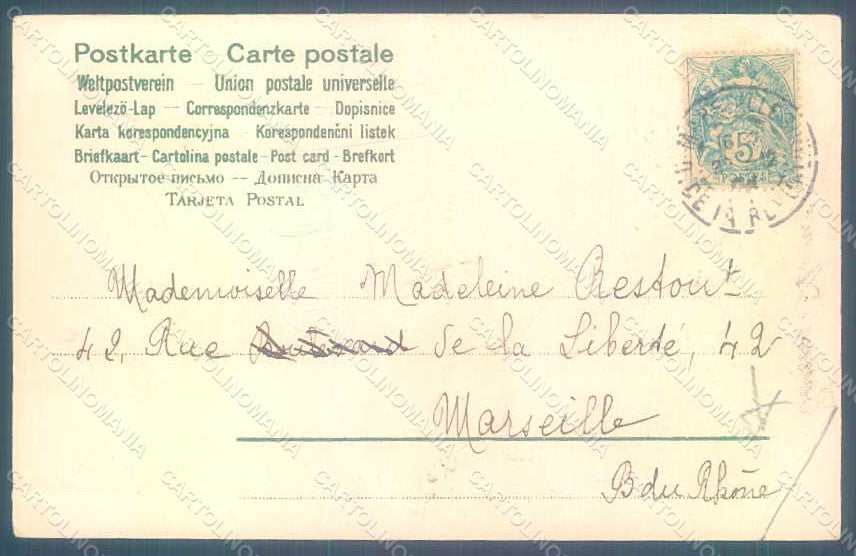 Postkarte – Carte postale
Weltpostverein – Union postale universelle
Levelező-Lap – Correspondenzkarte – Dopisnice
Karta korespondencyjna – Korespondenční listek
Briefkaart – Cartolina postale – Post card – Brefkort
Открытое письмо – Дописна Карта
Tarjeta Postal
5
POSTES
Mademoiselle Madeleine Restout
42, Rue de la Liberté, 42
Marseille
B du Rhône
CARTOLINOMANIA